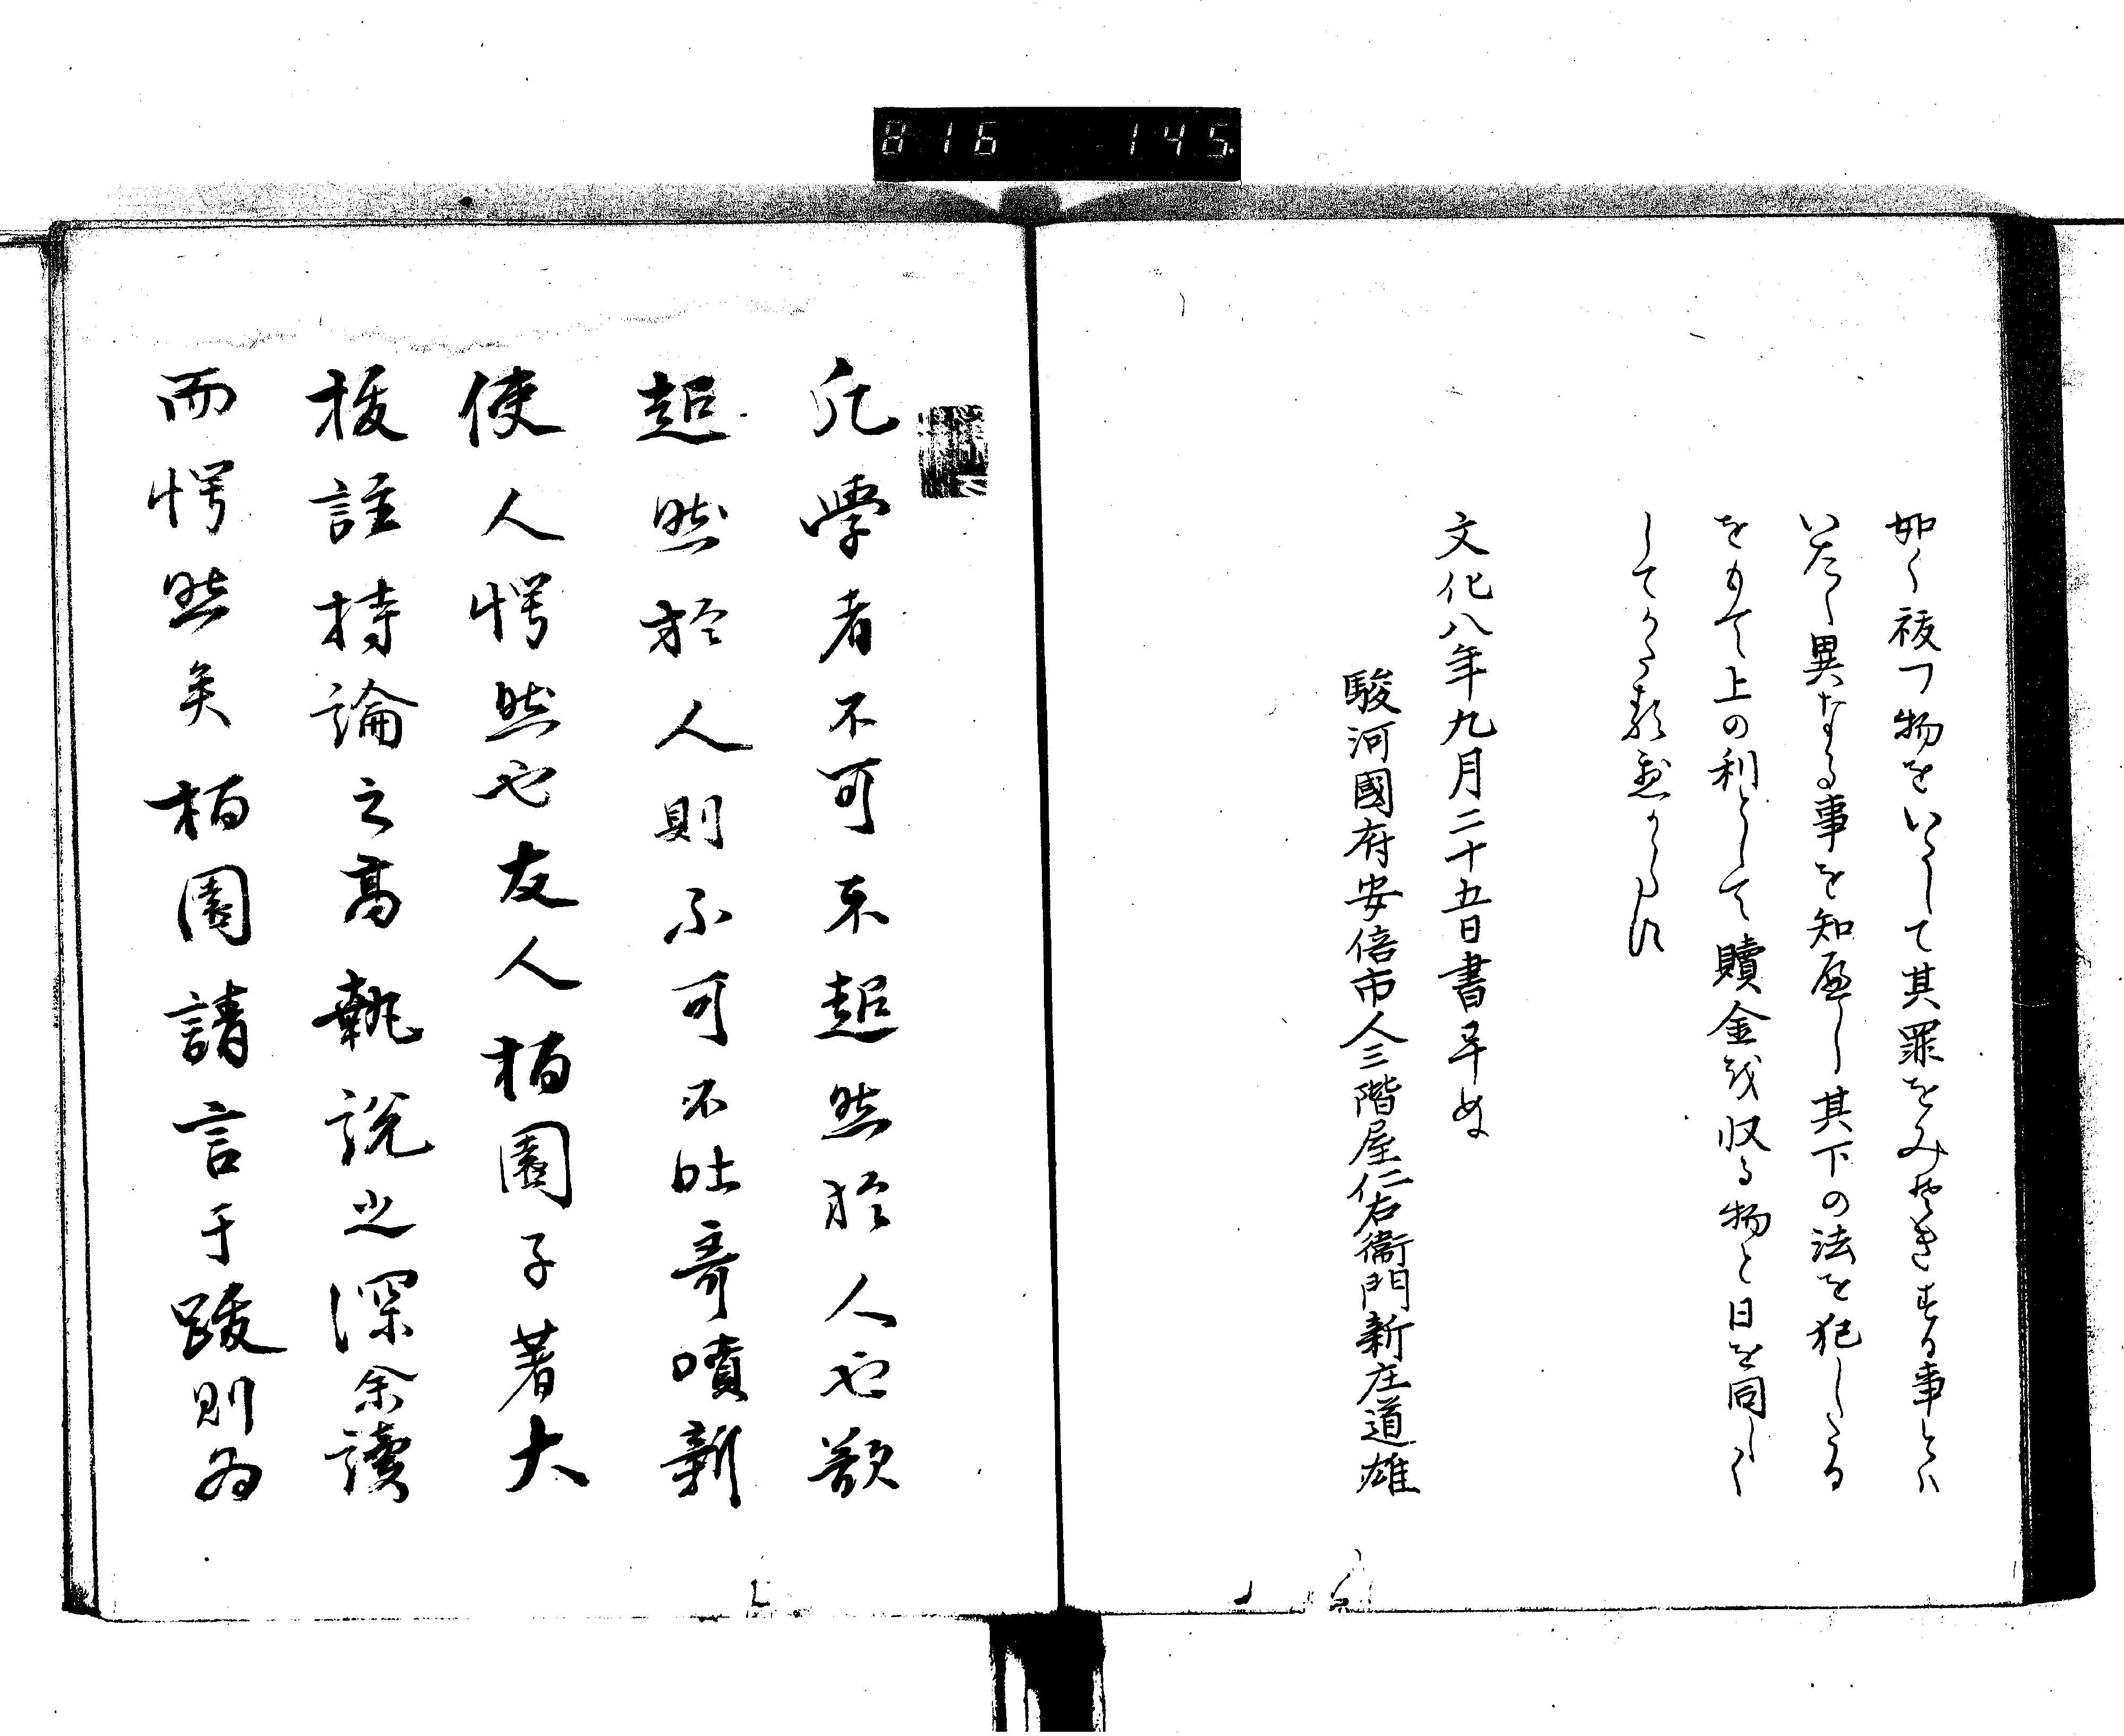 816 145
如く祓つ物をいたして其罪をみそきする事とハ
いたく異なる事を知へし其下の法を犯したる
をもて上の利として贖金を収る物と日を同しく
して
文化八年九月二十五日書畢ぬ
駿河國府安倍市人三階屋仁右衞門新庄道雄
凡學者不可不超然於人也欲
超然於人則不可不吐奇噴新
使人愕然也友人栢園子著大
祓註持論之高執說之深余讀
而愕然矣栢園請言于跋則為